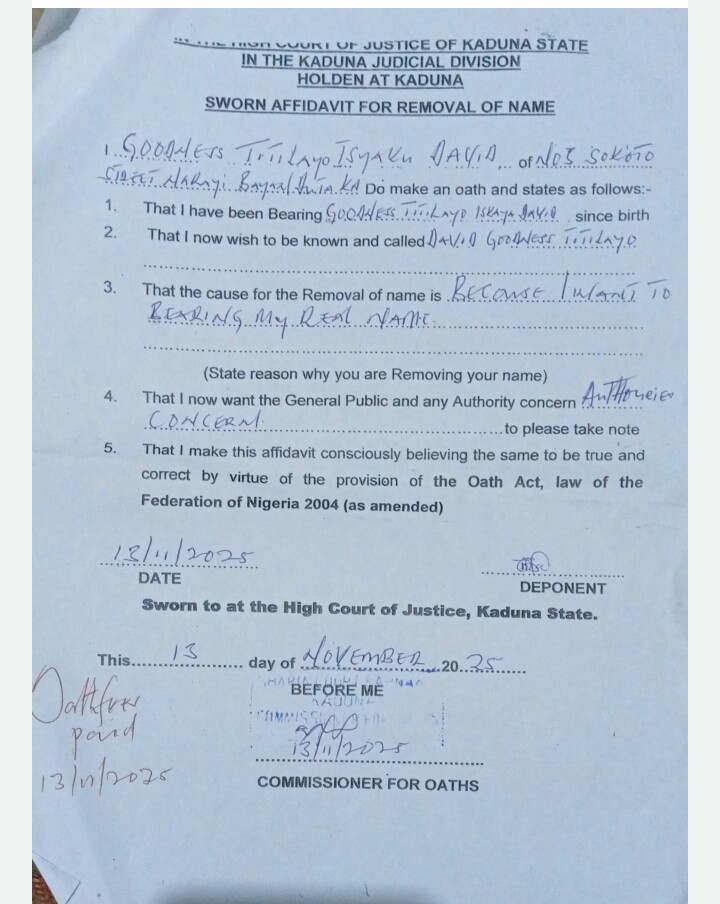 HIGH COURT OF JUSTICE OF KADUNA STATE
IN THE KADUNA JUDICIAL DIVISION
HOLDEN AT KADUNA
SWORN AFFIDAVIT FOR REMOVAL OF NAME
I GOODNESS TITILAYO ISYAKU DAVID of NO5 SOKOTO
STREET NARAYI KD Do make an oath and states as follows:-
1. That I have been Bearing GOODNESS TITILAYO ISKAYA DAVID since birth
2. That I now wish to be known and called DAVID GOODNESS TITILAYO
3. That the cause for the Removal of name is BECOUSE I WANT TO
BEARING MY REAL NAME.
(State reason why you are Removing your name)
4. That I now want the General Public and any Authority concern
CONCERN to please take note
5. That I make this affidavit consciously believing the same to be true and
correct by virtue of the provision of the Oath Act, law of the
Federation of Nigeria 2004 (as amended)
13/11/2025
DATE
DEPONENT
Sworn to at the High Court of Justice, Kaduna State.
This 13 day of NOVEMBER 20 25
BEFORE ME
13/11/2025
COMMISSIONER FOR OATHS
Oath fees
paid
13/11/2025